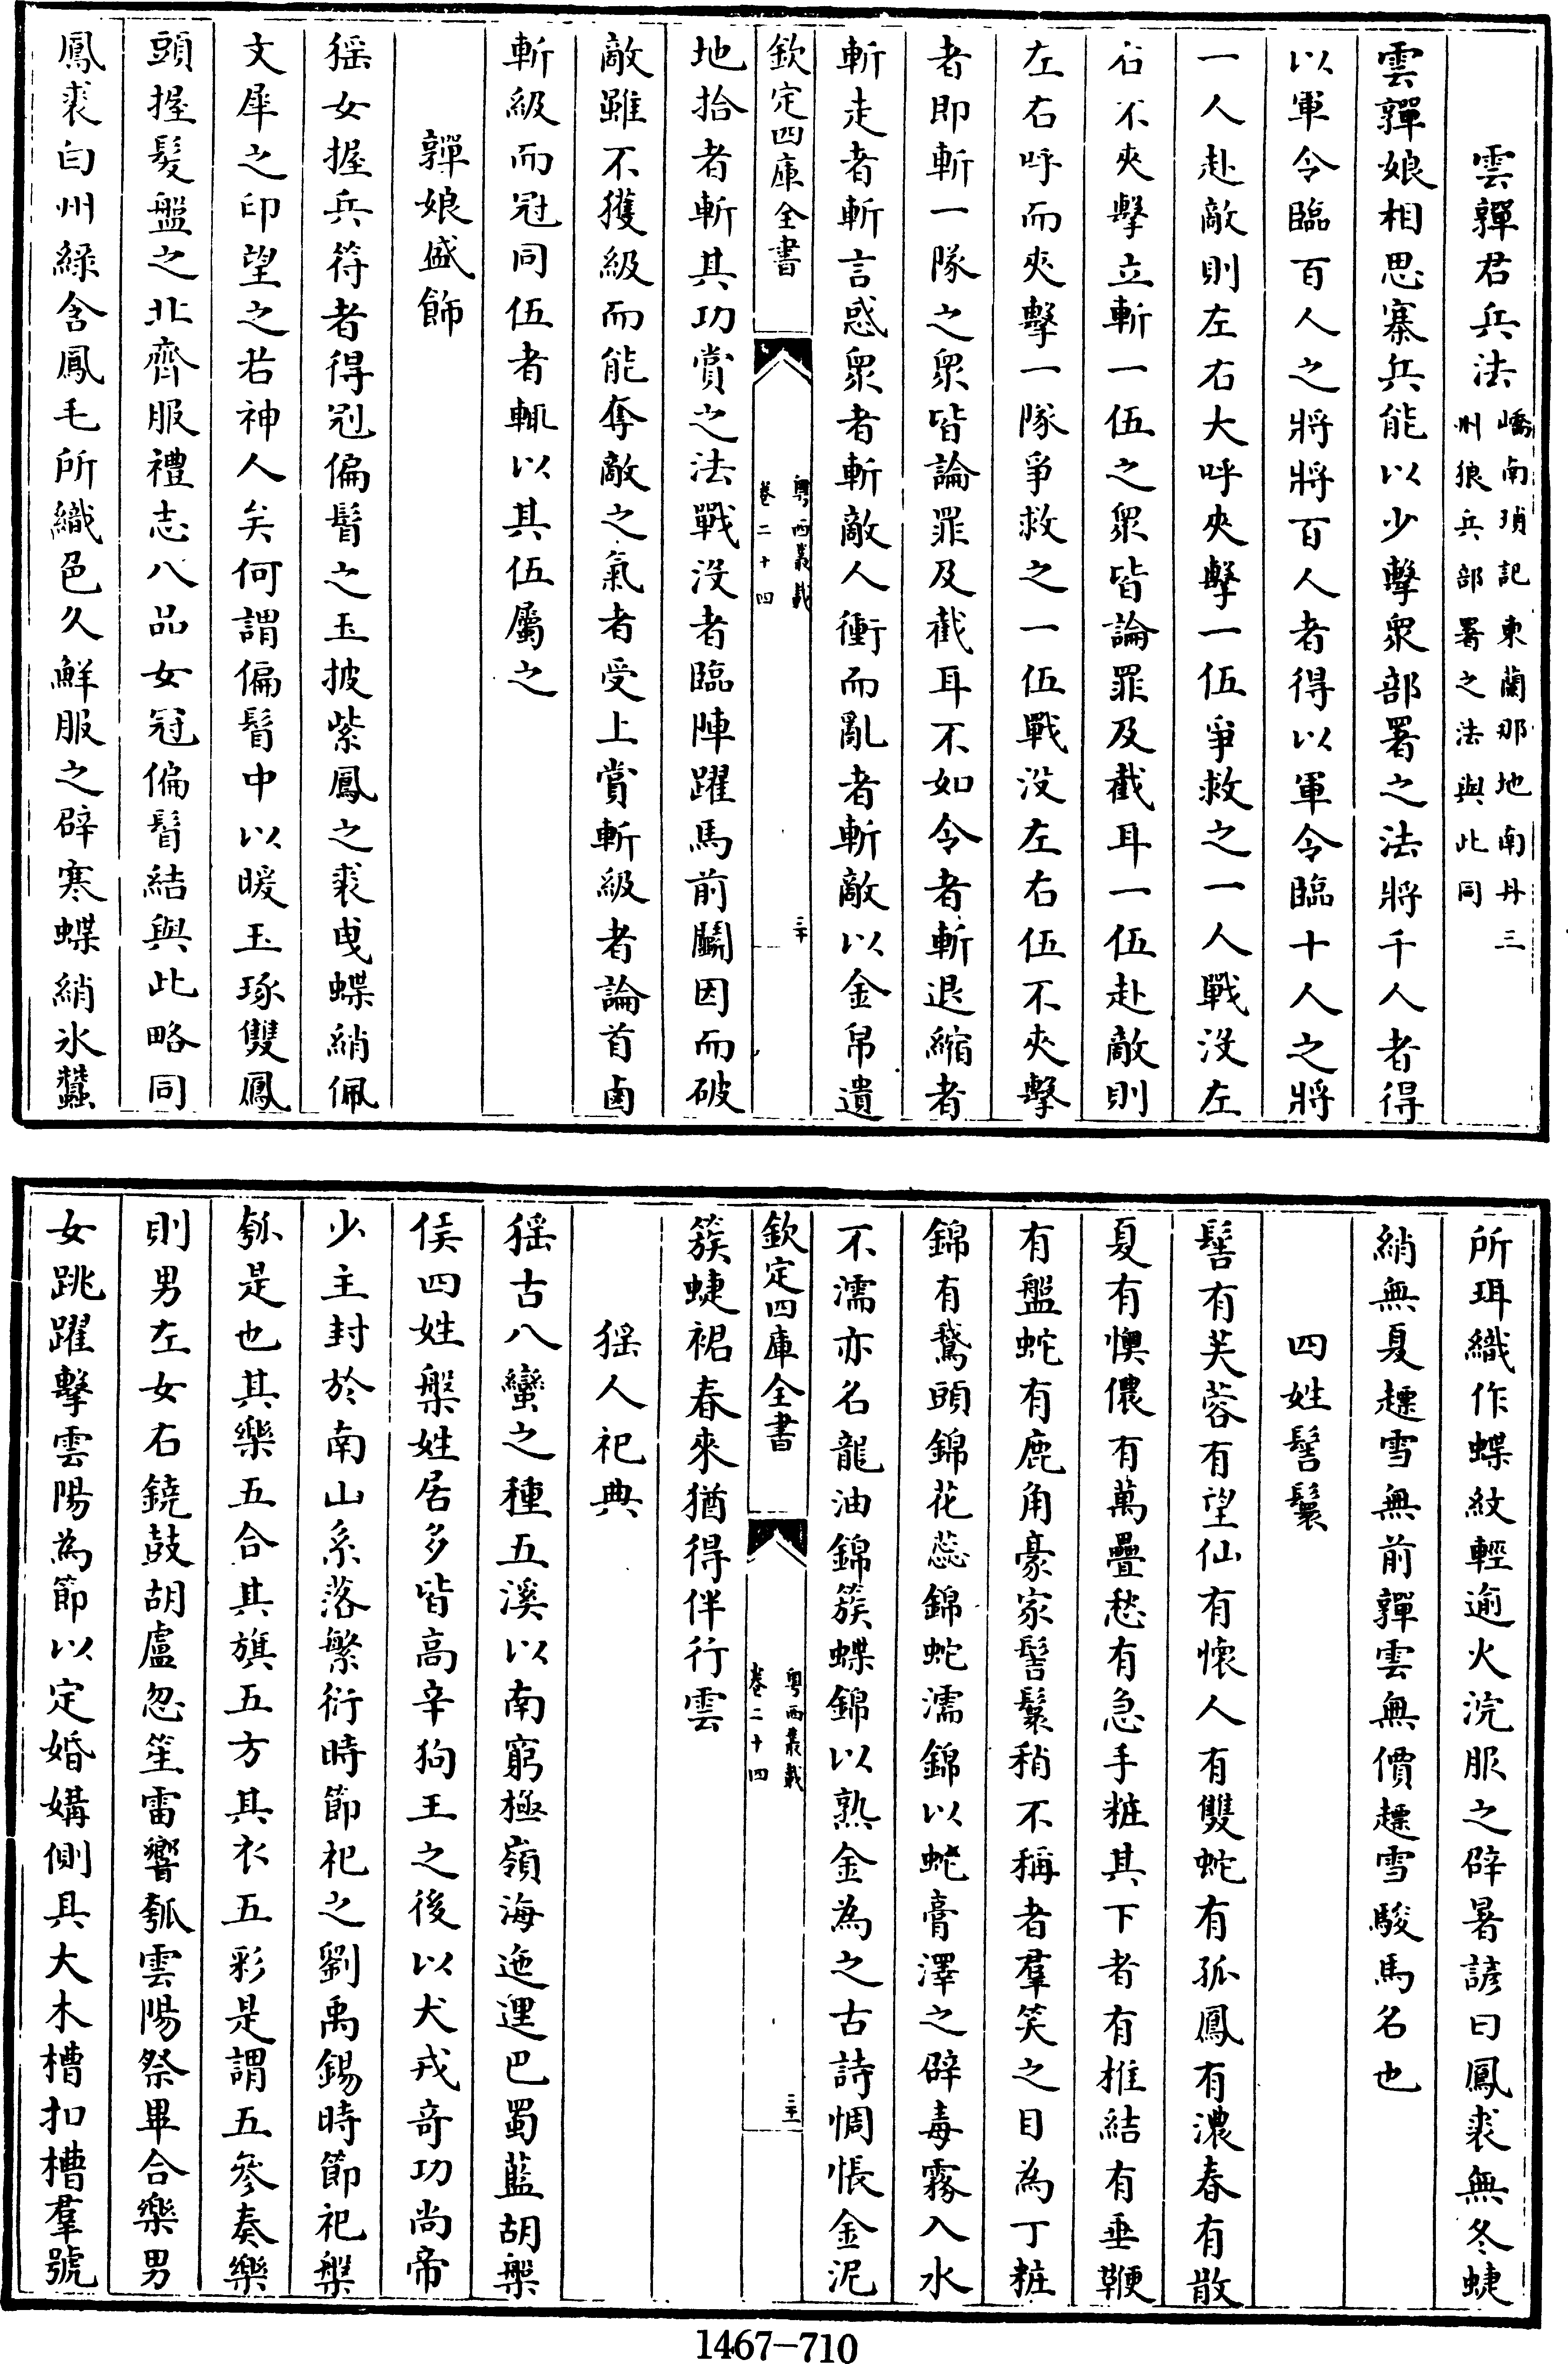 雲亸君兵法嶠南瑣記東蘭那地南丹三
州狼兵部署之法與此同
雲亸娘相思寨兵能以少擊衆部署之法將千人者得
以軍令臨百人之將將百人者得以軍令臨十人之將
一人赴敵則左右大呼夾擊一伍爭救之一人戰沒左
右不夾擊立斬一伍之衆皆論罪及截耳一伍赴敵則
左右呼而夾擊一隊爭救之一伍戰沒左右伍不夾擊
者即斬一隊之衆皆論罪及截耳不如令者斬退縮者
斬走者斬言惑衆者斬敵人衝而亂者斬敵以金帛遺
欽定四庫全書
粤西叢載
卷二十四
三十
地拾者斬其功賞之法戰沒者臨陣躍馬前鬭因而破
敵雖不獲級而能奪敵之氣者受上賞斬級者論首鹵
斬級而冠同伍者輒以其伍屬之
亸娘盛飾
猺女握兵符者得冠偏髾之玉披紫鳳之裘曳蝶綃佩
文犀之印望之若神人矣何謂偏髾中以暖玉琢雙鳳
頭握髮盤之北齊服禮志八品女冠偏髾結與此略同
鳳裘白州綠含鳳毛所織色久鮮服之辟寒蝶綃氷蠶
所珥織作蝶紋輕逾火浣服之辟暑諺曰鳳裘無冬蜨
綃無夏趨雪無前亸雲無價趨雪駿馬名也
四姓髻鬟
髻有芙蓉有望仙有懷人有雙蛇有孤鳳有濃春有散
夏有懊儂有萬疊愁有急手粧其下者有椎結有垂鞭
有盤蛇有鹿角豪家髻鬟稍不稱者羣笑之目為丁粧
錦有鵞頭錦花蕊錦蛇濡錦以蛇膏澤之辟毒霧入水
不濡亦名龍油錦簇蝶錦以熟金為之古詩惆悵金泥
欽定四庫全書
粤西叢載
卷二十四
三十一
簇蜨裙春來猶得伴行雲
猺人祀典
猺古八蠻之種五溪以南窮極嶺海迤邐巴蜀藍胡槃
侯四姓槃姓居多皆高辛狗王之後以犬戎奇功尚帝
少主封於南山系落繁衍時節祀之劉禹錫時節祀槃
瓠是也其樂五合其旗五方其衣五彩是謂五參奏樂
則男左女右鐃鼓胡盧忽笙雷響瓠雲陽祭畢合樂男
女跳躍擊雲陽為節以定婚媾側具大木槽扣槽羣號
1467-710